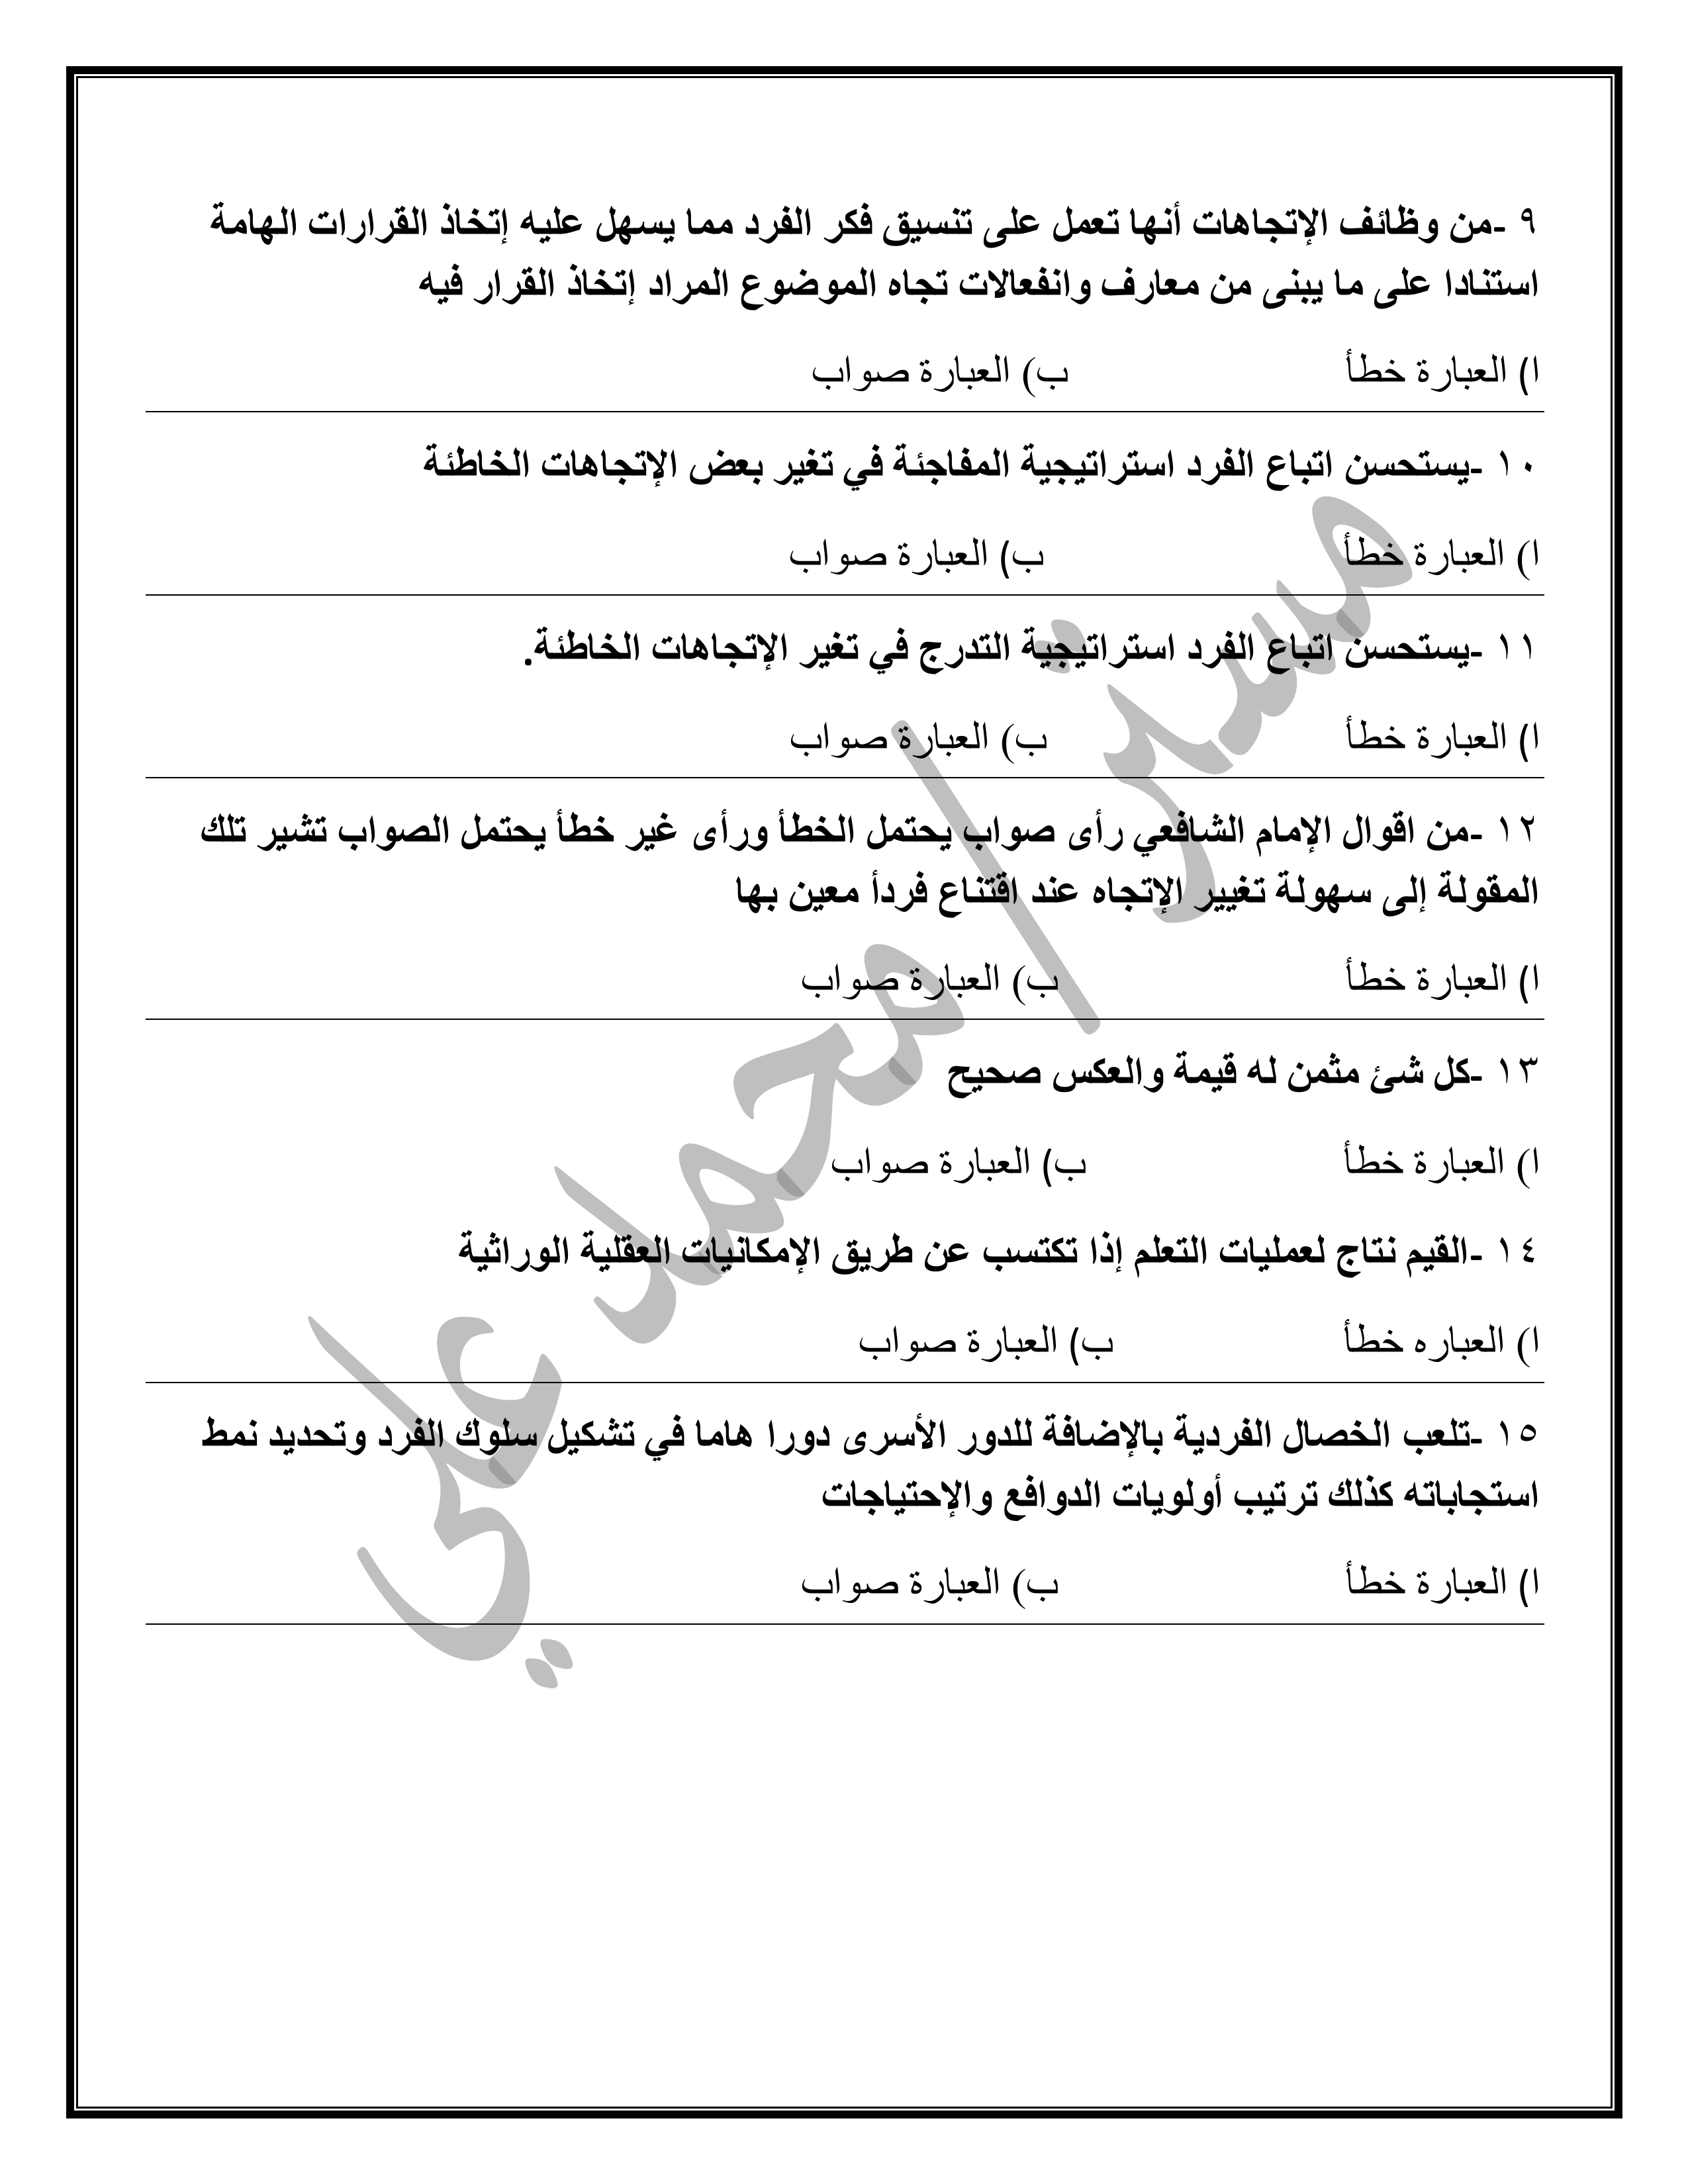 ٩ -من وظائف الإتجاهات أنها تعمل على تنسيق فكر الفرد مما يسهل عليه إتخاذ القرارات الهامة
استنادا على ما يبنى من معارف وانفعالات تجاه الموضوع المراد إتخاذ القرار فيه
ا) العبارة خطأ ب) العبارة صواب
١٠ -يستحسن اتباع الفرد استراتيجية المفاجئة في تغير بعض الإتجاهات الخاطئة
ا) العبارة خطأ ب) العبارة صواب
١١ -يستحسن اتباع الفرد استراتيجية التدرج في تغير الإتجاهات الخاطئة.
ا) العبارة خطأ ب) العبارة صواب
١٢ -من اقوال الإمام الشافعي رأى صواب يحتمل الخطأ ورأى غير خطأ يحتمل الصواب تشير تلك
المقولة إلى سهولة تغيير الإتجاه عند اقتناع فردأ معين بها
ا) العبارة خطأ ب) العبارة صواب
١٣ -كل شئ مثمن له قيمة والعكس صحيح
ا) العبارة خطأ ب) العبارة صواب
١٤ -القيم نتاج لعمليات التعلم إذا تكتسب عن طريق الإمكانيات العقلية الوراثية
ا) العباره خطأ ب) العبارة صواب
١٥ -تلعب الخصال الفردية بالإضافة للدور الأسرى دورا هاما في تشكيل سلوك الفرد وتحديد نمط
استجاباته كذلك ترتيب أولويات الدوافع والإحتياجات
ا) العبارة خطأ ب) العبارة صواب
مستر/محمد علي